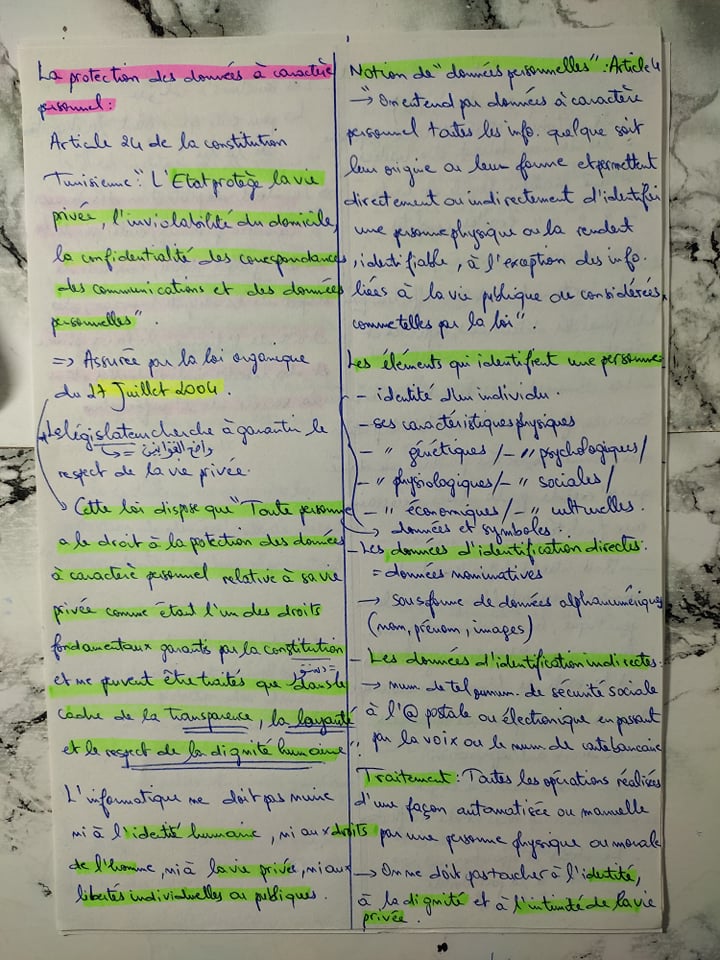 La protection des données à caractère
personnel:
Article 24 de la constitution
Tunisienne: "L'Etat protège la vie
privée, l'inviolabilité du domicile,
la confidentialité des correspondances
des communications et des données
personnelles".
=> Assurée par la loi organique
du 27 Juillet 2004.
Le législateur cherche à garantir le
= واضع القوانين
respect de la vie privée.
Cette loi dispose que "Toute personne
a le droit à la potection des données
à caractère personnel relative à sa vie
privée comme étant l'un des droits
fondamentaux garantis par la constitution
= دستور
et ne peuvent être traités que dans le
cadre de la transparence, la loyauté
et le respect de la dignité humaine".
L'informatique ne doit pas nuire
ni à l'identité humaine, ni aux droits
de l'homme, ni à la vie privée, ni aux
libertés individuelles ou publiques.
Notion de "données personnelles": Article 4
→ "On entend par données à caractère
personnel toutes les info. quelque soit
leur origine ou leur forme et permettent
directement ou indirectement d'identifier
une personne physique ou la rendent
identifiable, à l'exception des info.
liées à la vie publique ou considérées
comme telles par la loi".
Les éléments qui identifient une personne
- identité d'un individu.
- ses caractéristiques physiques
- " génétiques /- " psychologiques/
- " physiologiques/- " sociales/
- " économiques/- " culturelles.
→ données et symboles.
- Les données d'identification directes:
= données nominatives
→ sous forme de données alphanumériques
(nom, prénom, images)
- Les données d'identification indirectes:
→ num. de tel, num. de sécurité sociale
à l'@ postale ou électronique en passant
par la voix ou le num de carte bancaire
Traitement: Toutes les opérations réalisées
d'une façon automatisée ou manuelle
par une personne physique ou morale
→ On ne doit pas toucher à l'identité,
à la dignité et à l'intimité de la vie
privée.